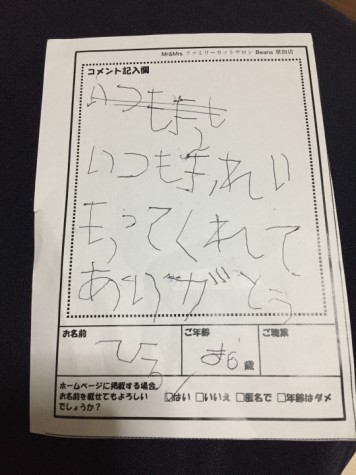 Mr&Mrs ファミリーカットサロン Beans
コメント記入欄
いつも
いつもきれい
きってくれて
ありがとう
お名前
ひろ
ご年齢
歳
ご職業
ホームページに掲載する場合、
お名前を載せてもよろしい
でしょうか?
はい いいえ 匿名で 年齢はダメ